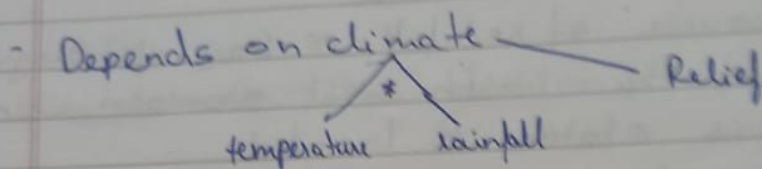 - Depends on climate
Relief
*
temperature rainfall